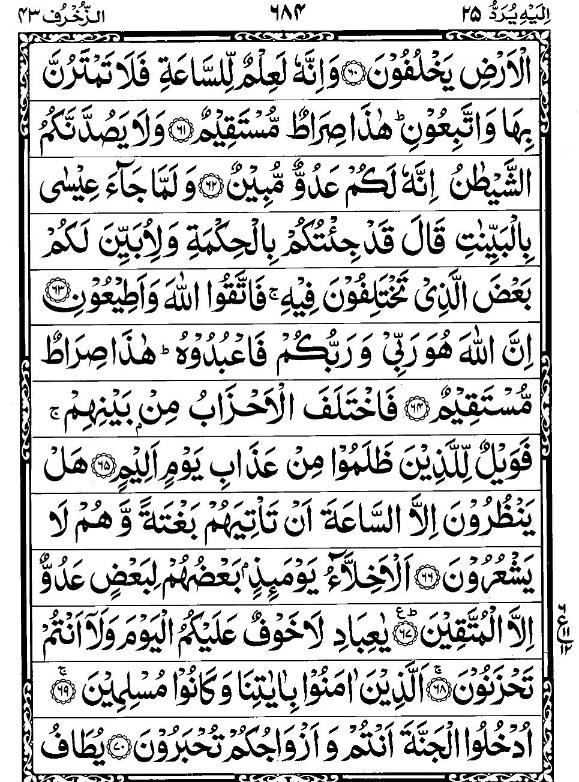 اِلَيْهِ يُرَدُّ ٢٥ ٦٨٤ الزُّخْرُف ٤٣
الْاَرْضِ يَخْلُفُوْنَ ﴿٦٠﴾ وَاِنَّهٗ لَعِلْمٌ لِّلسَّاعَةِ فَلَا تَمْتَرُنَّ
بِهَا وَاتَّبِعُوْنِ ؕ هٰذَا صِرَاطٌ مُّسْتَقِيْمٌ ﴿٦١﴾ وَلَا يَصُدَّنَّكُمُ
الشَّيْطٰنُ ۚ اِنَّهٗ لَكُمْ عَدُوٌّ مُّبِيْنٌ ﴿٦٢﴾ وَلَمَّا جَآءَ عِيْسٰى
بِالْبَيِّنٰتِ قَالَ قَدْ جِئْتُكُمْ بِالْحِكْمَةِ وَلِاُبَيِّنَ لَكُمْ
بَعْضَ الَّذِىْ تَخْتَلِفُوْنَ فِيْهِ ۚ فَاتَّقُوا اللّٰهَ وَاَطِيْعُوْنِ ﴿٦٣﴾
اِنَّ اللّٰهَ هُوَ رَبِّىْ وَرَبُّكُمْ فَاعْبُدُوْهُ ؕ هٰذَا صِرَاطٌ
مُّسْتَقِيْمٌ ﴿٦٤﴾ فَاخْتَلَفَ الْاَحْزَابُ مِنْۢ بَيْنِهِمْ ۚ
فَوَيْلٌ لِّلَّذِيْنَ ظَلَمُوْا مِنْ عَذَابِ يَوْمٍ اَلِيْمٍ ﴿٦٥﴾ هَلْ
يَنْظُرُوْنَ اِلَّا السَّاعَةَ اَنْ تَاْتِيَهُمْ بَغْتَةً وَّهُمْ لَا
يَشْعُرُوْنَ ﴿٦٦﴾ اَلْاَخِلَّآءُ يَوْمَئِذٍۭ بَعْضُهُمْ لِبَعْضٍ عَدُوٌّ
اِلَّا الْمُتَّقِيْنَ ﴿٦٧﴾ؕ ع يٰعِبَادِ لَا خَوْفٌ عَلَيْكُمُ الْيَوْمَ وَلَاۤ اَنْتُمْ
تَحْزَنُوْنَ ﴿٦٨﴾ۚ اَلَّذِيْنَ اٰمَنُوْا بِاٰيٰتِنَا وَكَانُوْا مُسْلِمِيْنَ ﴿٦٩﴾ۚ
اُدْخُلُوا الْجَنَّةَ اَنْتُمْ وَاَزْوَاجُكُمْ تُحْبَرُوْنَ ﴿٧٠﴾ يُطَافُ
٦
ع ١١
١٢